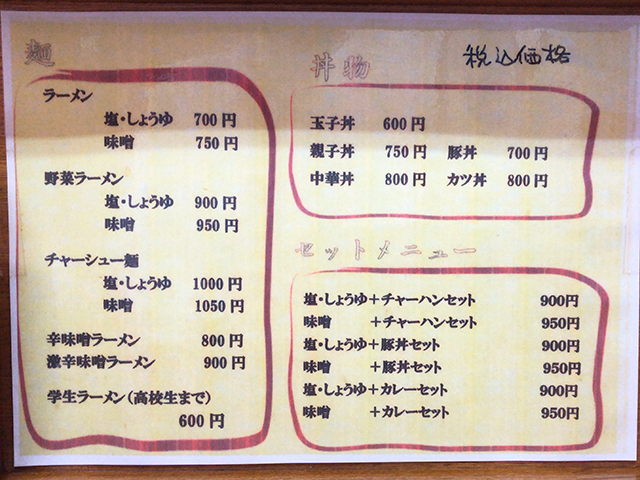 麺
ラーメン
塩・しょうゆ 700円
味噌 750円
野菜ラーメン
塩・しょうゆ 900円
味噌 950円
チャーシュー麺
塩・しょうゆ 1000円
味噌 1050円
辛味噌ラーメン 800円
激辛味噌ラーメン 900円
学生ラーメン(高校生まで)
600円
丼物
税込価格
玉子丼 600円
親子丼 750円 豚丼 700円
中華丼 800円 カツ丼 800円
セットメニュー
塩・しょうゆ+チャーハンセット 900円
味噌 +チャーハンセット 950円
塩・しょうゆ+豚丼セット 900円
味噌 +豚丼セット 950円
塩・しょうゆ+カレーセット 900円
味噌 +カレーセット 950円